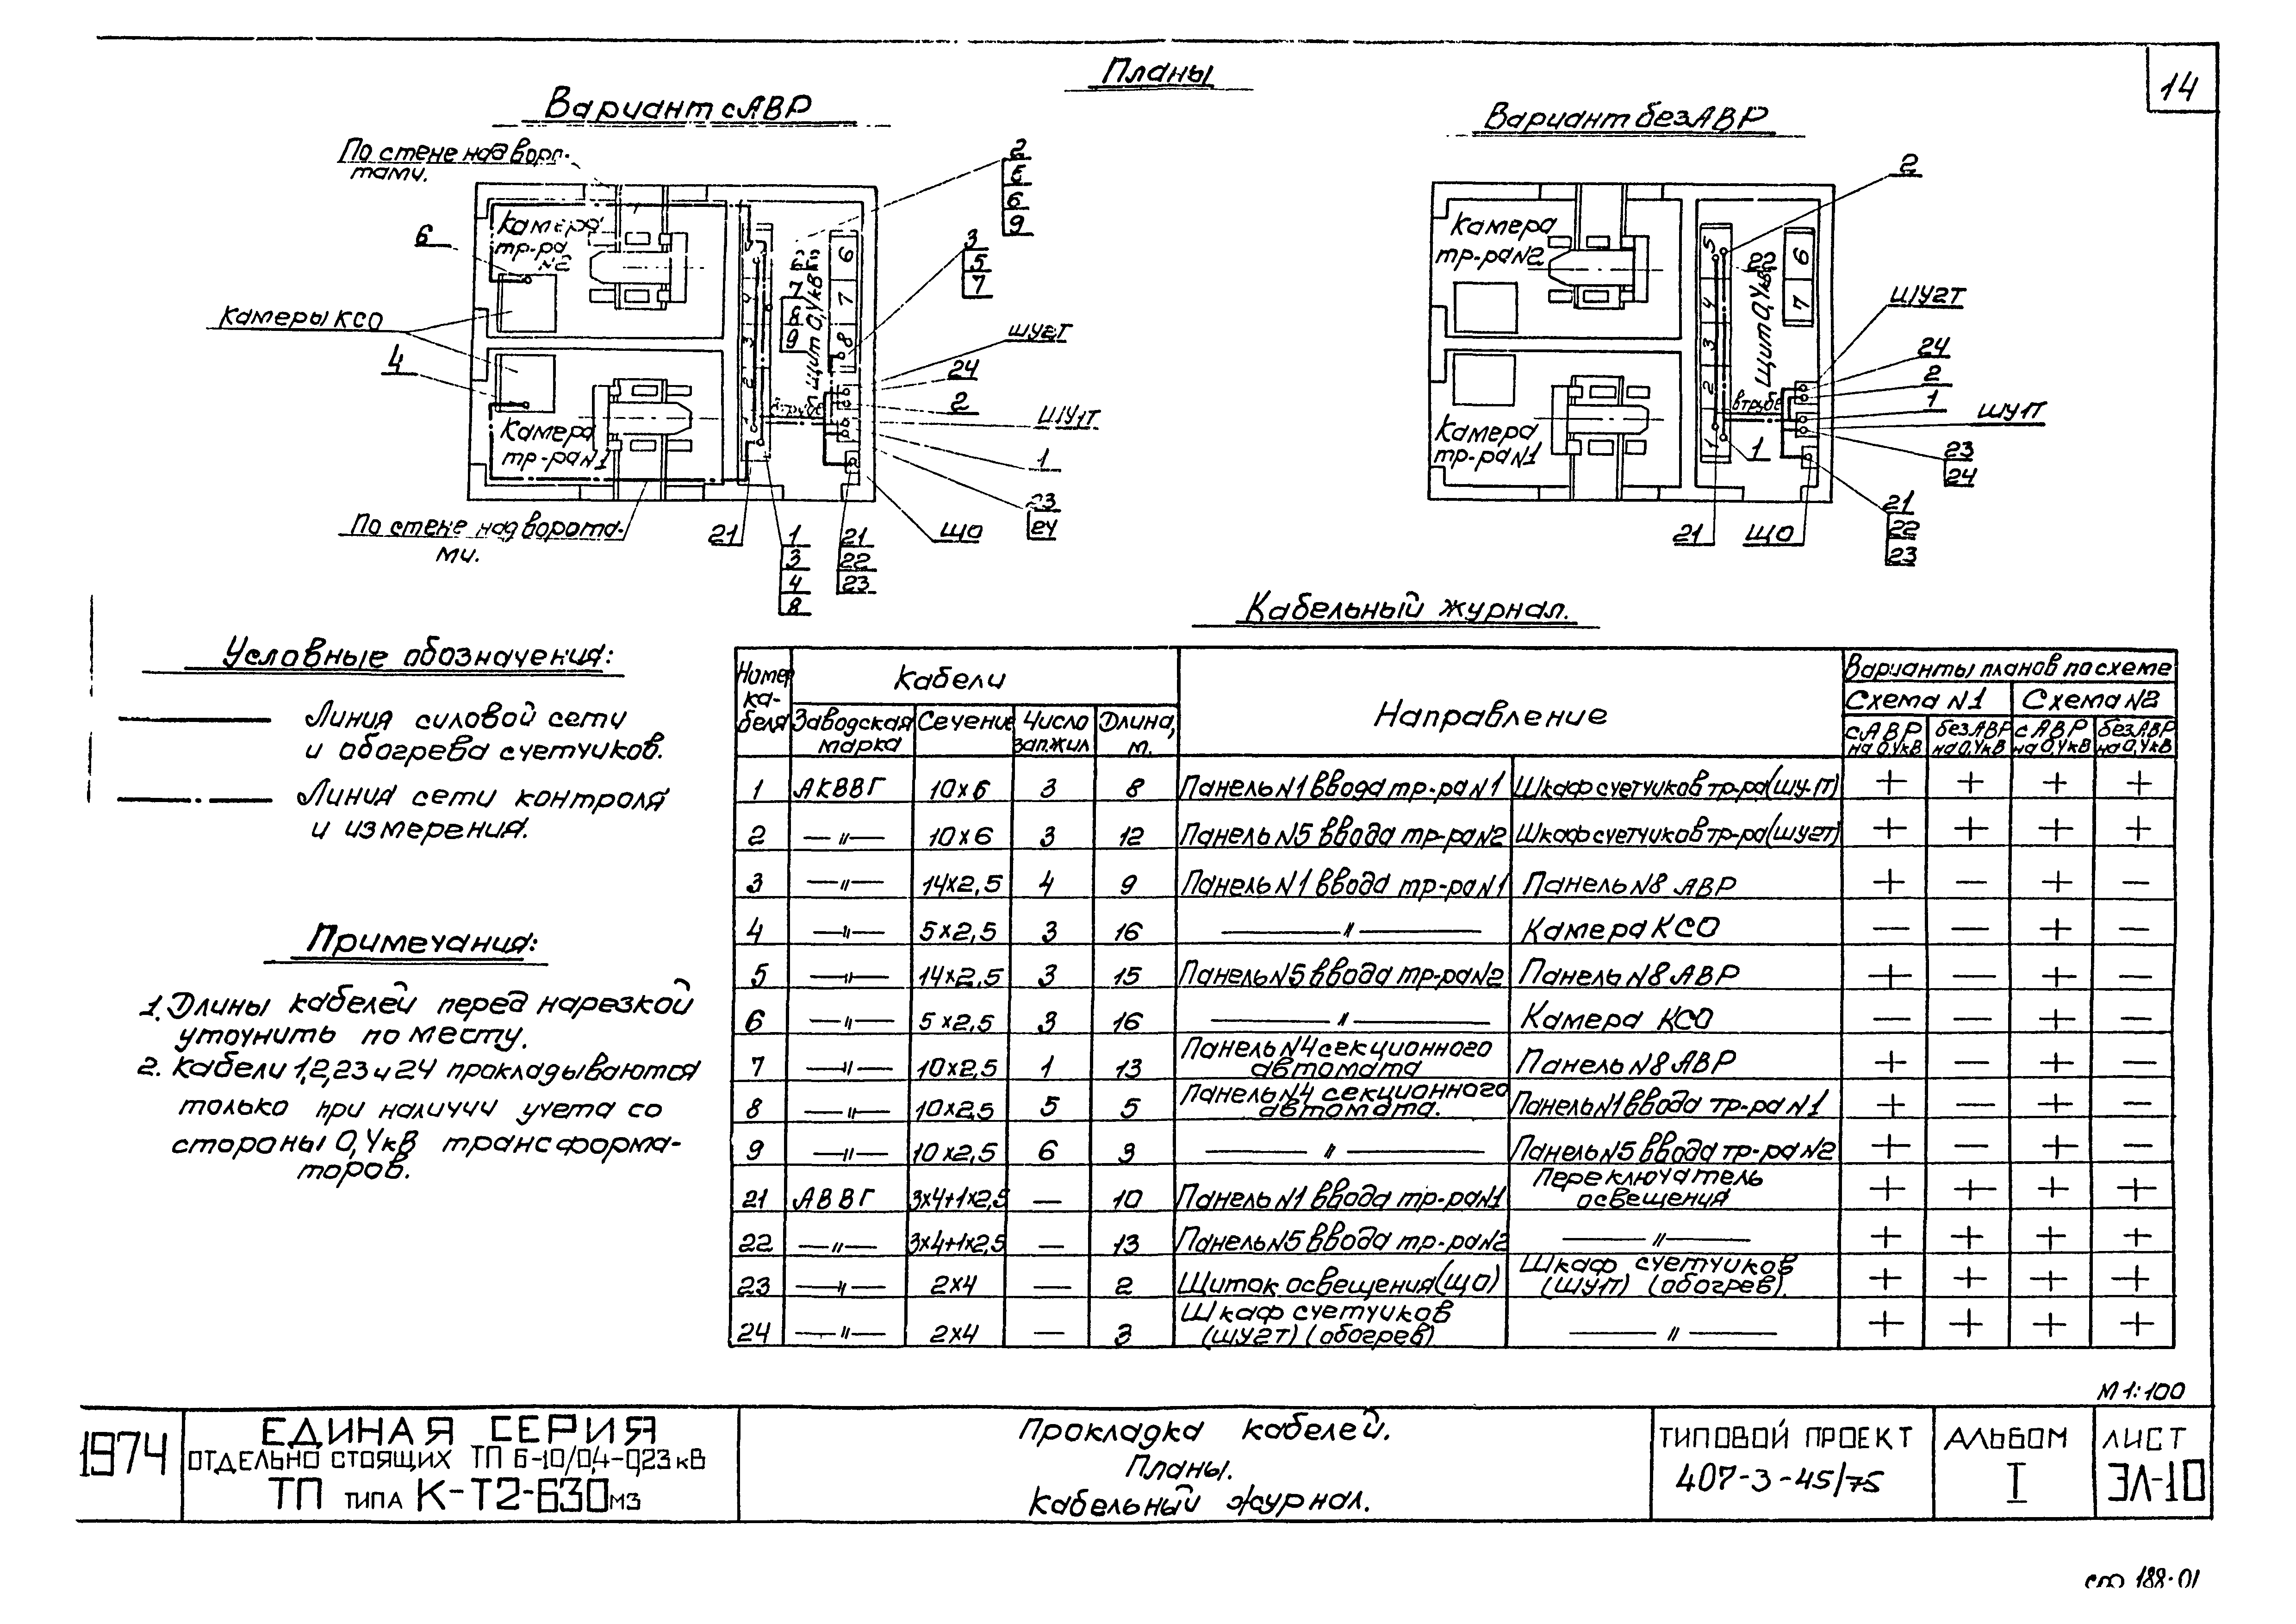 Планы
14
Вариант с АВР
По стене над воро-
тами.
Камера
тр-ра
N2
6
Камеры КСО
4
Камера
тр-ра N1
По стене над ворота-
ми.
5
6
7
8
9
Щит 0,4 кВ
6
7
8
2
5
6
9
3
5
7
ШУ2Т
24
2
ШУ1Т
1
23
24
ЩО
21
1
3
4
8
21
22
23
Вариант без АВР
Камера
тр-ра N2
Камера
тр-ра N1
5
4
3
2
1
22
Щит 0,4 кВ
в трубе
6
7
2
ШУ2Т
24
2
1
ШУ1Т
23
24
1
21
ЩО
21
22
23
Условные обозначения:
Линия силовой сети
и обогрева счетчиков.
Линия сети контроля
и измерения.
Примечания:
1. Длины кабелей перед нарезкой
уточнить по месту.
2. Кабели 1,2,23 и 24 прокладываются
только при наличии учета со
стороны 0,4 кВ трансформа-
торов.
Кабельный журнал.
Номер ка-беля Кабели Направление Варианты планов по схеме
Схема N1 Схема N2
Заводская марка Сечение Число зап.жил Длина, м. с АВР на 0,4 кВ без АВР на 0,4 кВ с АВР на 0,4 кВ без АВР на 0,4 кВ
1 АКВВГ 10×6 3 8 Панель N1 ввода тр-ра N1 Шкаф счетчиков тр-ра (ШУ1Т) + + + +
2 —"— 10×6 3 12 Панель N5 ввода тр-ра N2 Шкаф счетчиков тр-ра (ШУ2Т) + + + +
3 —"— 14×2,5 4 9 Панель N1 ввода тр-ра N1 Панель N8 АВР + — + —
4 —"— 5×2,5 3 16 —"— Камера КСО — — + —
5 —"— 14×2,5 3 15 Панель N5 ввода тр-ра N2 Панель N8 АВР + — + —
6 —"— 5×2,5 3 16 —"— Камера КСО — — + —
7 —"— 10×2,5 1 13 Панель N4 секционного автомата Панель N8 АВР + — + —
8 —"— 10×2,5 5 5 Панель N4 секционного автомата. Панель N1 ввода тр-ра N1 + — + —
9 —"— 10×2,5 6 3 —"— Панель N5 ввода тр-ра N2 + — + —
21 АВВГ 3×4+1×2,5 — 10 Панель N1 ввода тр-ра N1 Переключатель освещения + + + +
22 —"— 3×4+1×2,5 — 13 Панель N5 ввода тр-ра N2 —"— + + + +
23 —"— 2×4 — 2 Щиток освещения (ЩО) Шкаф счетчиков (ШУ1Т) (обогрев). + + + +
24 —"— 2×4 — 3 Шкаф счетчиков (ШУ2Т) (обогрев) —"— + + + +
М 1:100
1974
ЕДИНАЯ СЕРИЯ
ОТДЕЛЬНО СТОЯЩИХ ТП 6-10/0,4-0,23 кВ
ТП ТИПА К-Т2-630 М3
Прокладка кабелей.
Планы.
Кабельный журнал.
ТИПОВОЙ ПРОЕКТ
407-3-45/75
АЛЬБОМ
I
ЛИСТ
ЭЛ-10
188-01